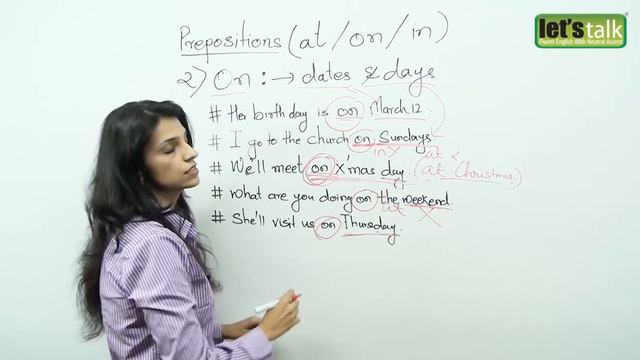 Prepositions (at/on/in)
let's talk
Fluent English With Neutral Accent
2) On :→ dates & days
# Her birthday is on March 12.
# I go to the church on Sundays.
in X at X
# We'll meet on X'mas day. (at Christmas)
# What are you doing on the weekend.
at X
# She'll visit us on Thursday.